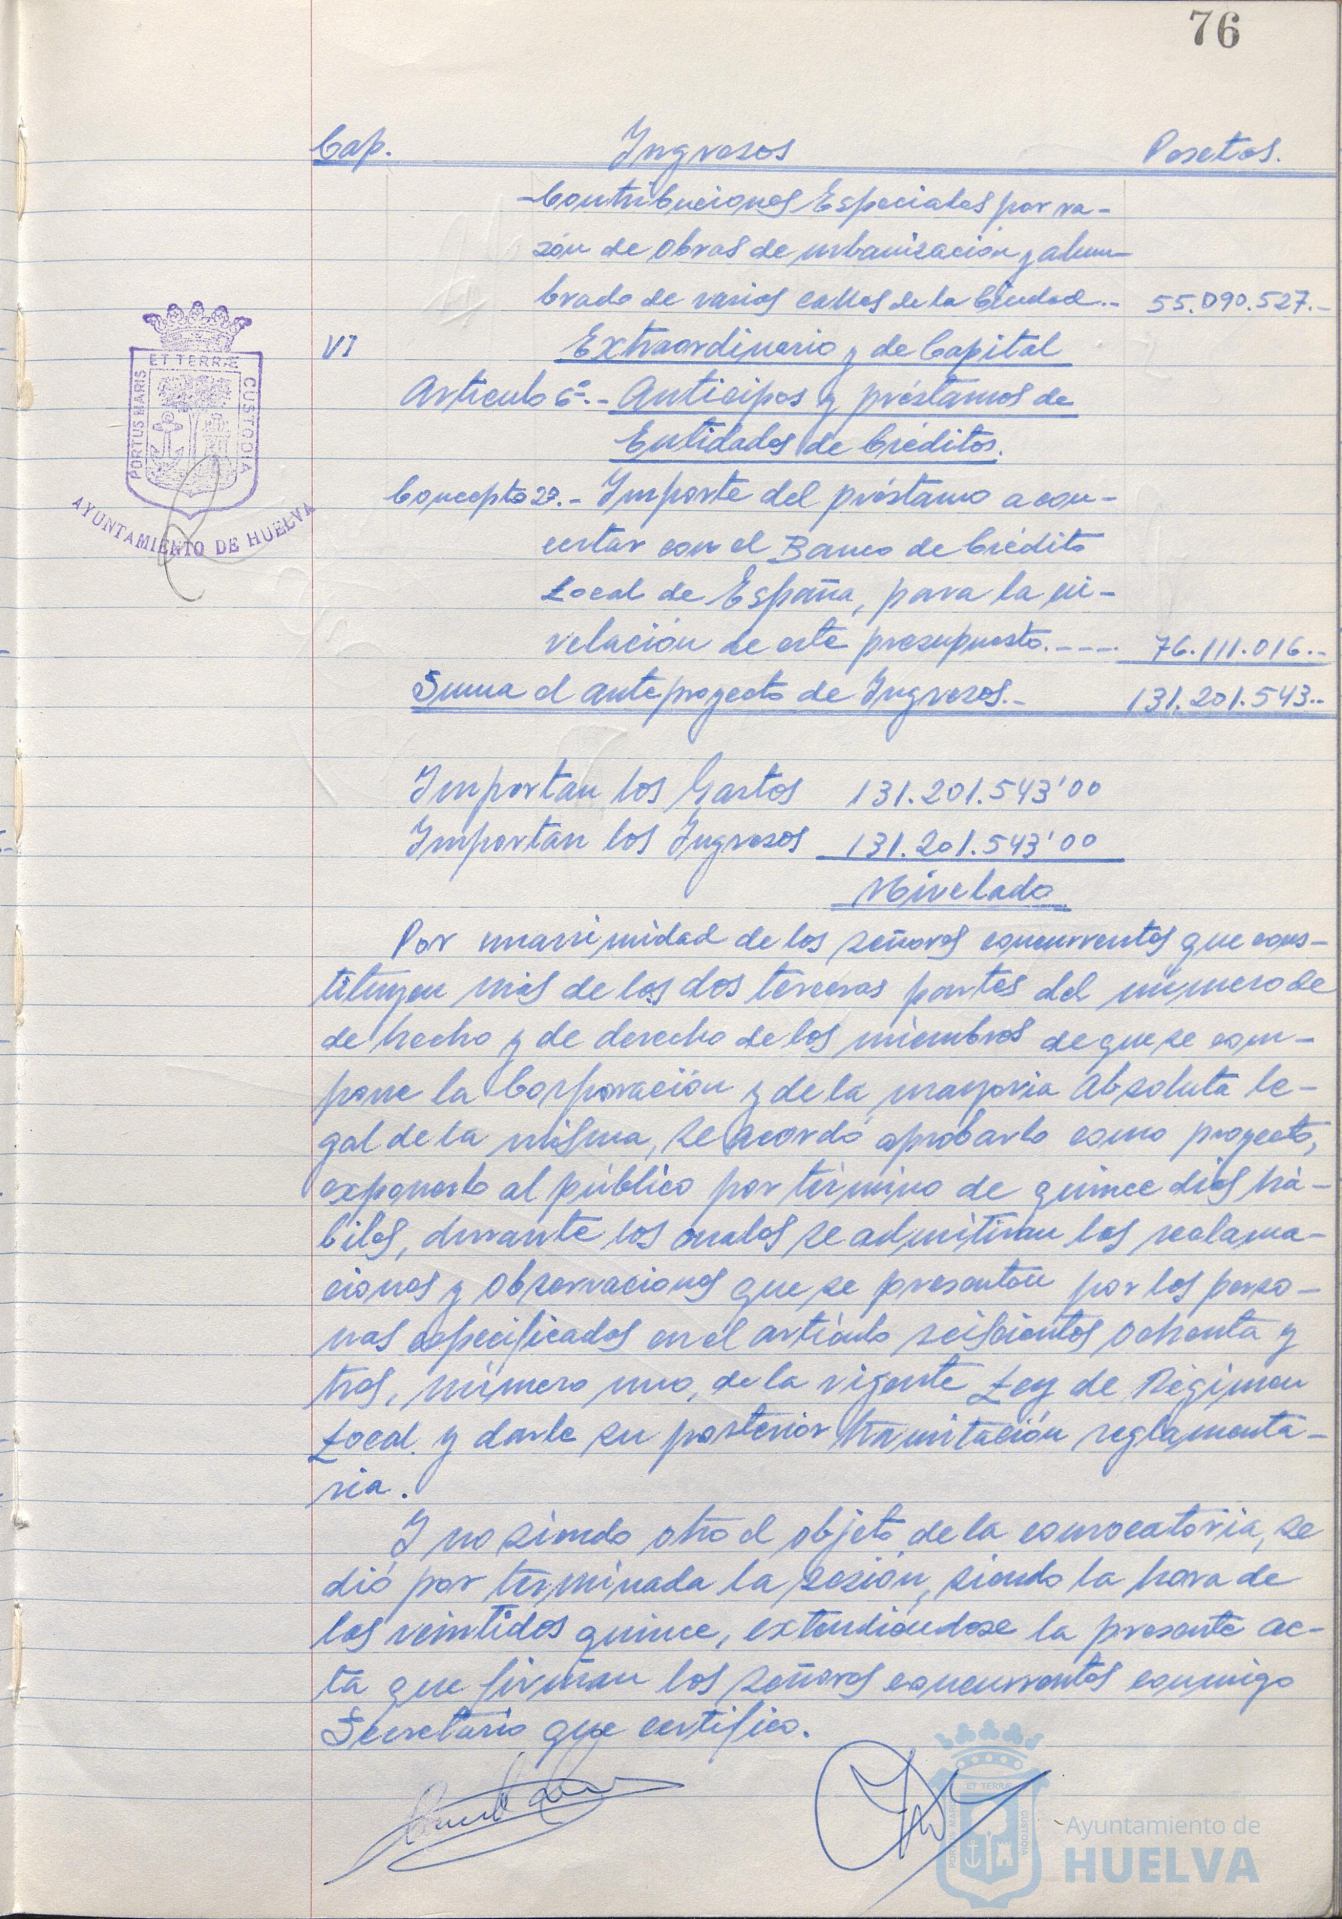 76
Cap. Ingresos Pesetas.
-Contribuciones Especiales por ra-
zón de obras de urbanización y alum-
brado de varias calles de la Ciudad.- 55.090.527.-
VI Extraordinario y de Capital
Artículo 6º.- Anticipos y préstamos de
Entidades de Créditos.
Concepto 27.- Importe del préstamo a con-
certar con el Banco de Crédito
Local de España, para la ni-
velación de este presupuesto.---- 76.111.016.-
Suma el anteproyecto de Ingresos.- 131.201.543.-
Importan los Gastos 131.201.543'00
Importan los Ingresos 131.201.543'00
Nivelado
Por unanimidad de los señores concurrentes que cons-
tituyen más de las dos terceras partes del número de
de hecho y de derecho de los miembros de que se com-
pone la Corporación y de la mayoría absoluta le-
gal de la misma, se acordó aprobarlo como proyecto,
exponerlo al público por término de quince días há-
biles, durante los cuales se admitirán las reclama-
ciones y observaciones que se presenten por las perso-
nas especificadas en el artículo seiscientos ochenta y
tres, número uno, de la vigente Ley de Régimen
Local y darle su posterior tramitación reglamenta-
ria.
Y no siendo otro el objeto de la convocatoria, se
dió por terminada la sesión, siendo la hora de
las veintidos quince, extendiéndose la presente ac-
ta que firman los señores concurrentes conmigo
Secretario que certifico.
PORTUS MARIS ET TERRÆ CUSTODIA
AYUNTAMIENTO DE HUELVA
PORTUS MARIS ET TERRÆ CUSTODIA
Ayuntamiento de
HUELVA